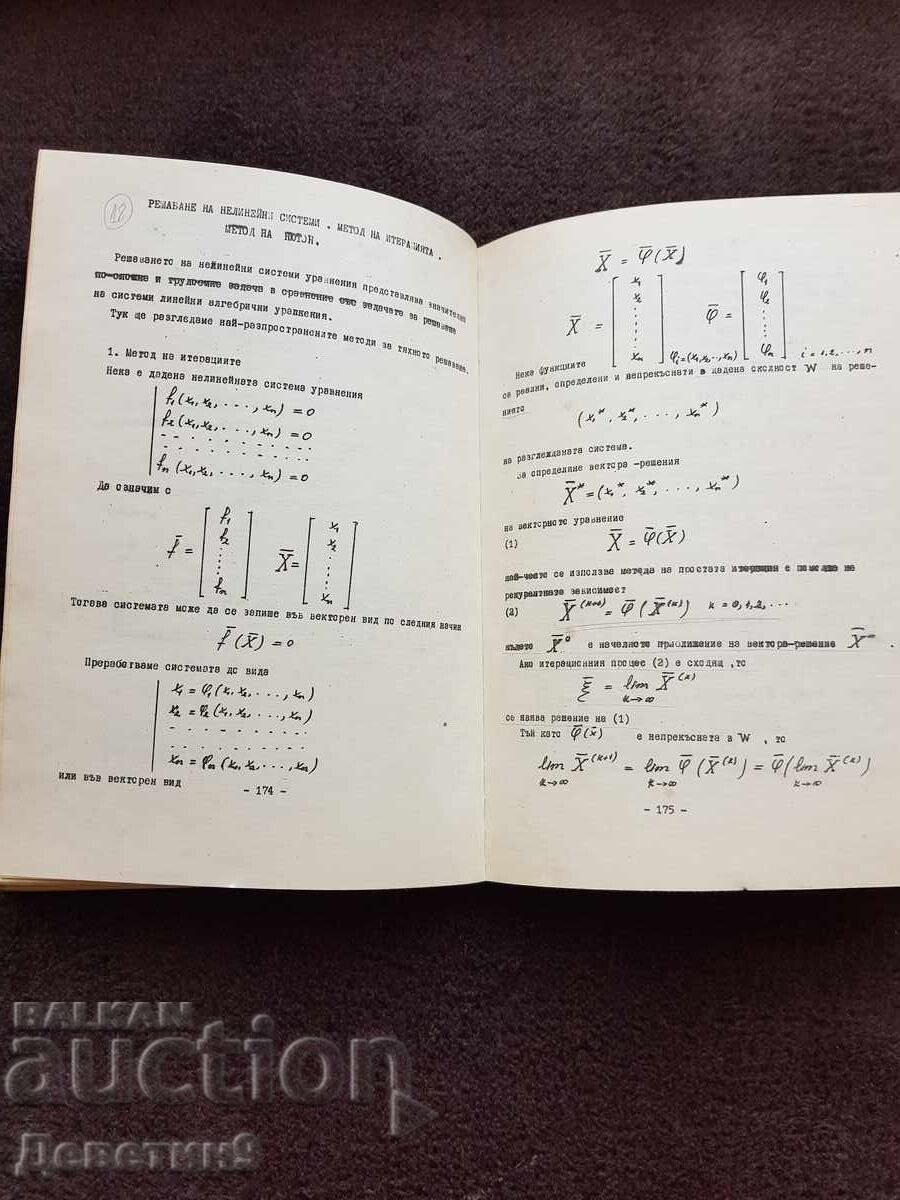 18
РЕШАВАНЕ НА НЕЛИНЕЙНИ СИСТЕМИ . МЕТОД НА ИТЕРАЦИЯТА .
МЕТОД НА НЮТОН.
Решаването на нелинейни системи уравнения представлява значително
по-сложна и трудоемка задача в сравнение със задачата за решаване
на системи линейни алгебрични уравнения.
Тук ще разгледаме най-разпространените методи за тяхното решаване.
1. Метод на итерациите
Нека е дадена нелинейната система уравнения
f₁(x₁,x₂,...,xₙ) = 0
f₂(x₁,x₂,...,xₙ) = 0
- - . - . - . . . . . .
- . - . - . . . . . . .
fₙ(x₁,x₂,...,xₙ) = 0
Да означим с
f̄ = [f₁ f₂ ... fₙ] X̄ = [x₁ x₂ ... xₙ]
Тогава системата може да се запише във векторен вид по следния начин
f̄(X̄) = 0
Преработваме системата до вида
x₁ = φ₁(x₁,x₂,...,xₙ)
x₂ = φ₂(x₁,x₂,...,xₙ)
- . - . - . - . - .
- . - . . . . . . .
xₙ = φₙ(x₁,x₂,...,xₙ)
или във векторен вид
- 174 -
X̄ = φ̄(X̄)
X̄ = [x₁ x₂ ... xₙ] φ̄ = [φ₁ φ₂ ... φₙ]
Нека функциите φᵢ=(x₁,x₂,..,xₙ) i = 1,2,...,n
се реални, определени и непрекъснати в дадена околност W на реше-
нието
(x₁*, x₂*, ..., xₙ*)
на разглежданата система.
За определяне вектора -решения
X̄* = (x₁*, x₂*, ..., xₙ*)
на векторното уравнение
(1) X̄ = φ̄(X̄)
най-често се използва метода на простата итерация с помощта на
рекурентната зависимост
(2) X̄⁽ᵏ⁺¹⁾ = φ̄(X̄⁽ᵏ⁾) k = 0,1,2,...
където X̄⁰ е началното приближение на вектора-решение X̄* .
Ако итерационния процес (2) е сходящ ,то
ξ̄ = lim X̄⁽ᵏ⁾
k→∞
се явява решение на (1)
Тъй като φ̄(x̄) е непрекъсната в W , то
lim X̄⁽ᵏ⁺¹⁾ = lim φ̄(X̄⁽ᵏ⁾) = φ̄(lim X̄⁽ᵏ⁾)
k→∞ k→∞ k→∞
- 175 -
BALKAN
auction
Деветин9